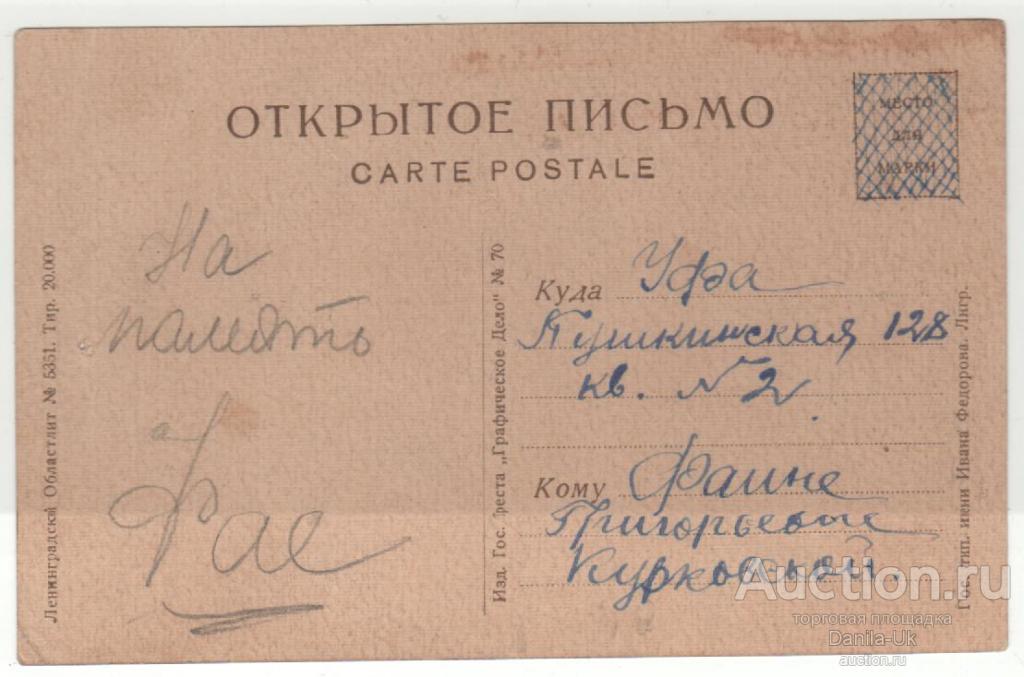 ОТКРЫТОЕ ПИСЬМО
CARTE POSTALE
МЕСТО
ДЛЯ
МАРКИ
Ленинградский Областлит № 5351. Тир. 20.000
На
память
Фае
Изд. Гос. треста „Графическое Дело" № 70
Куда Уфа
Пушкинская 128
кв. № 2
Кому Фаине
Григорьевне
Курковской.
Гос. тип. имени Ивана Федорова. Лнгр.
Auction.ru
торговая площадка
Danila-Uk
auction.ru